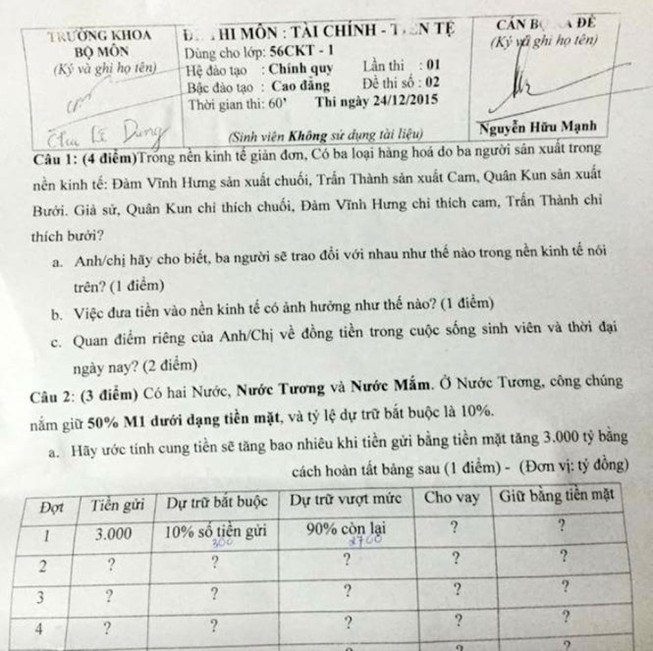 TRƯỞNG KHOA
BỘ MÔN
(Ký và ghi họ tên)
THI MÔN : TÀI CHÍNH - TIỀN TỆ
Dùng cho lớp: 56CKT - 1
Hệ đào tạo : Chính quy Lần thi : 01
Bậc đào tạo : Cao đẳng Đề thi số : 02
Thời gian thi: 60' Thi ngày 24/12/2015
(Sinh viên Không sử dụng tài liệu)
CÁN BỘ RA ĐỀ
(Ký và ghi họ tên)
Nguyễn Hữu Mạnh
Lê Dung
Câu 1: (4 điểm)Trong nền kinh tế giản đơn, Có ba loại hàng hoá do ba người sản xuất trong
nền kinh tế: Đàm Vĩnh Hưng sản xuất chuối, Trấn Thành sản xuất Cam, Quân Kun sản xuất
Bưởi. Giả sử, Quân Kun chỉ thích chuối, Đàm Vĩnh Hưng chỉ thích cam, Trấn Thành chỉ
thích bưởi?
a. Anh/chị hãy cho biết, ba người sẽ trao đổi với nhau như thế nào trong nền kinh tế nói
trên? (1 điểm)
b. Việc đưa tiền vào nền kinh tế có ảnh hưởng như thế nào? (1 điểm)
c. Quan điểm riêng của Anh/Chị về đồng tiền trong cuộc sống sinh viên và thời đại
ngày nay? (2 điểm)
Câu 2: (3 điểm) Có hai Nước, Nước Tương và Nước Mắm. Ở Nước Tương, công chúng
nắm giữ 50% M1 dưới dạng tiền mặt, và tỷ lệ dự trữ bắt buộc là 10%.
a. Hãy ước tính cung tiền sẽ tăng bao nhiêu khi tiền gửi bằng tiền mặt tăng 3.000 tỷ bằng
cách hoàn tất bảng sau (1 điểm) - (Đơn vị: tỷ đồng)
Đợt Tiền gửi Dự trữ bắt buộc Dự trữ vượt mức Cho vay Giữ bằng tiền mặt
1 3.000 10% số tiền gửi 90% còn lại ? ?
300 2700
2 ? ? ? ? ?
3 ? ? ? ? ?
4 ? ? ? ? ?
? ?